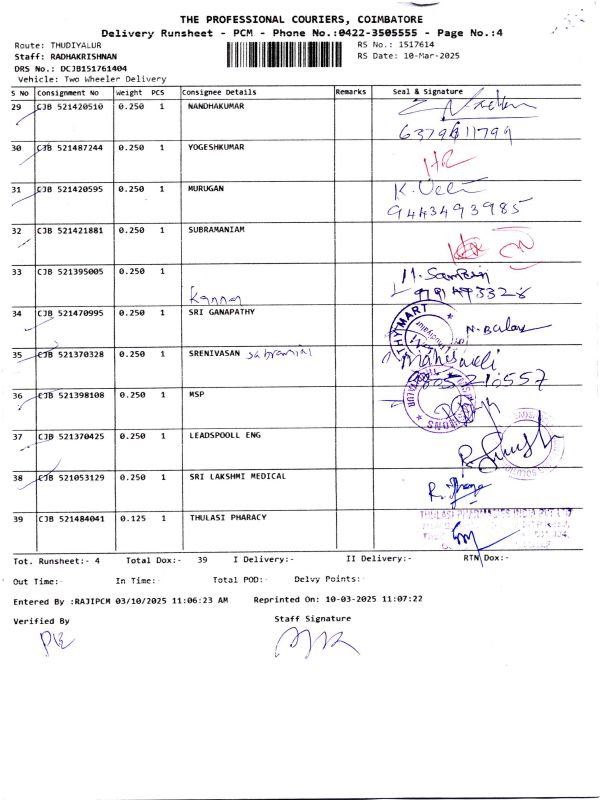 THE PROFESSIONAL COURIERS, COIMBATORE
Delivery Runsheet - PCM - Phone No.:0422-3505555 - Page No.:4
Route: THUDIYALUR
RS No.: 1517614
Staff: RADHAKRISHNAN
RS Date: 10-Mar-2025
DRS No.: DCJB151761404
Vehicle: Two Wheeler Delivery
S No Consignment No Weight PCS Consignee Details Remarks Seal & Signature
29 CJB 521420510 0.250 1 NANDHAKUMAR
30 CJB 521487244 0.250 1 YOGESHKUMAR
31 CJB 521420595 0.250 1 MURUGAN
9443493985
32 CJB 521421881 0.250 1 SUBRAMANIAM
33 CJB 521395005 0.250 1
Kannan
34 CJB 521470995 0.250 1 SRI GANAPATHY
35 CJB 521370328 0.250 1 SRENIVASAN
36 CJB 521398108 0.250 1 MSP
37 CJB 521370425 0.250 1 LEADSPOOLL ENG
38 CJB 521053129 0.250 1 SRI LAKSHMI MEDICAL
39 CJB 521484041 0.125 1 THULASI PHARACY
THULASI PHARMACIES INDIA PVT LTD
Tot. Runsheet:- 4 Total Dox:- 39 I Delivery:- II Delivery:- RTN Dox:-
Out Time:- In Time:- Total POD:- Delvy Points:-
Entered By :RAJIPCM 03/10/2025 11:06:23 AM Reprinted On: 10-03-2025 11:07:22
Verified By Staff Signature